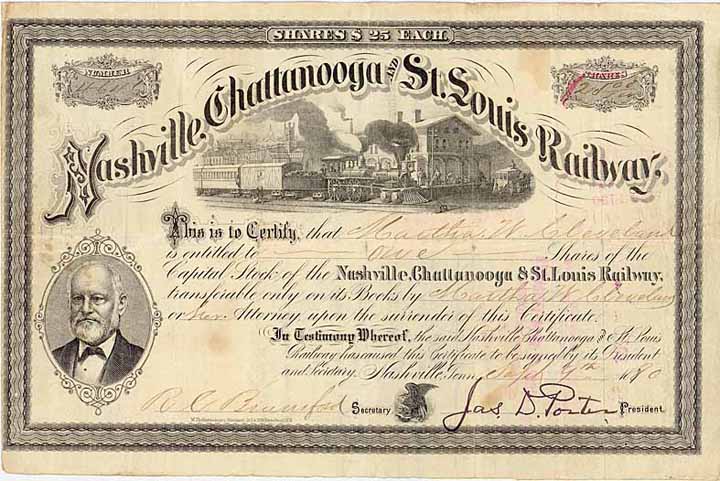 SHARES $ 25 EACH.
NUMBER
SHARES
Nashville, Chattanooga AND St. Louis Railway.
This is to Certify, that Martha W. Cleveland
is entitled to One Shares of the
Capital Stock of the Nashville, Chattanooga & St. Louis Railway,
transferable only on its Books by Martha W. Cleveland
or Her Attorney upon the surrender of this Certificate.
In Testimony Whereof, the said Nashville Chattanooga and St. Louis
Railway has caused this Certificate to be signed by its President
and Secretary. Nashville, Tenn. Sept 1880
Secretary Jas. D. Porter President.